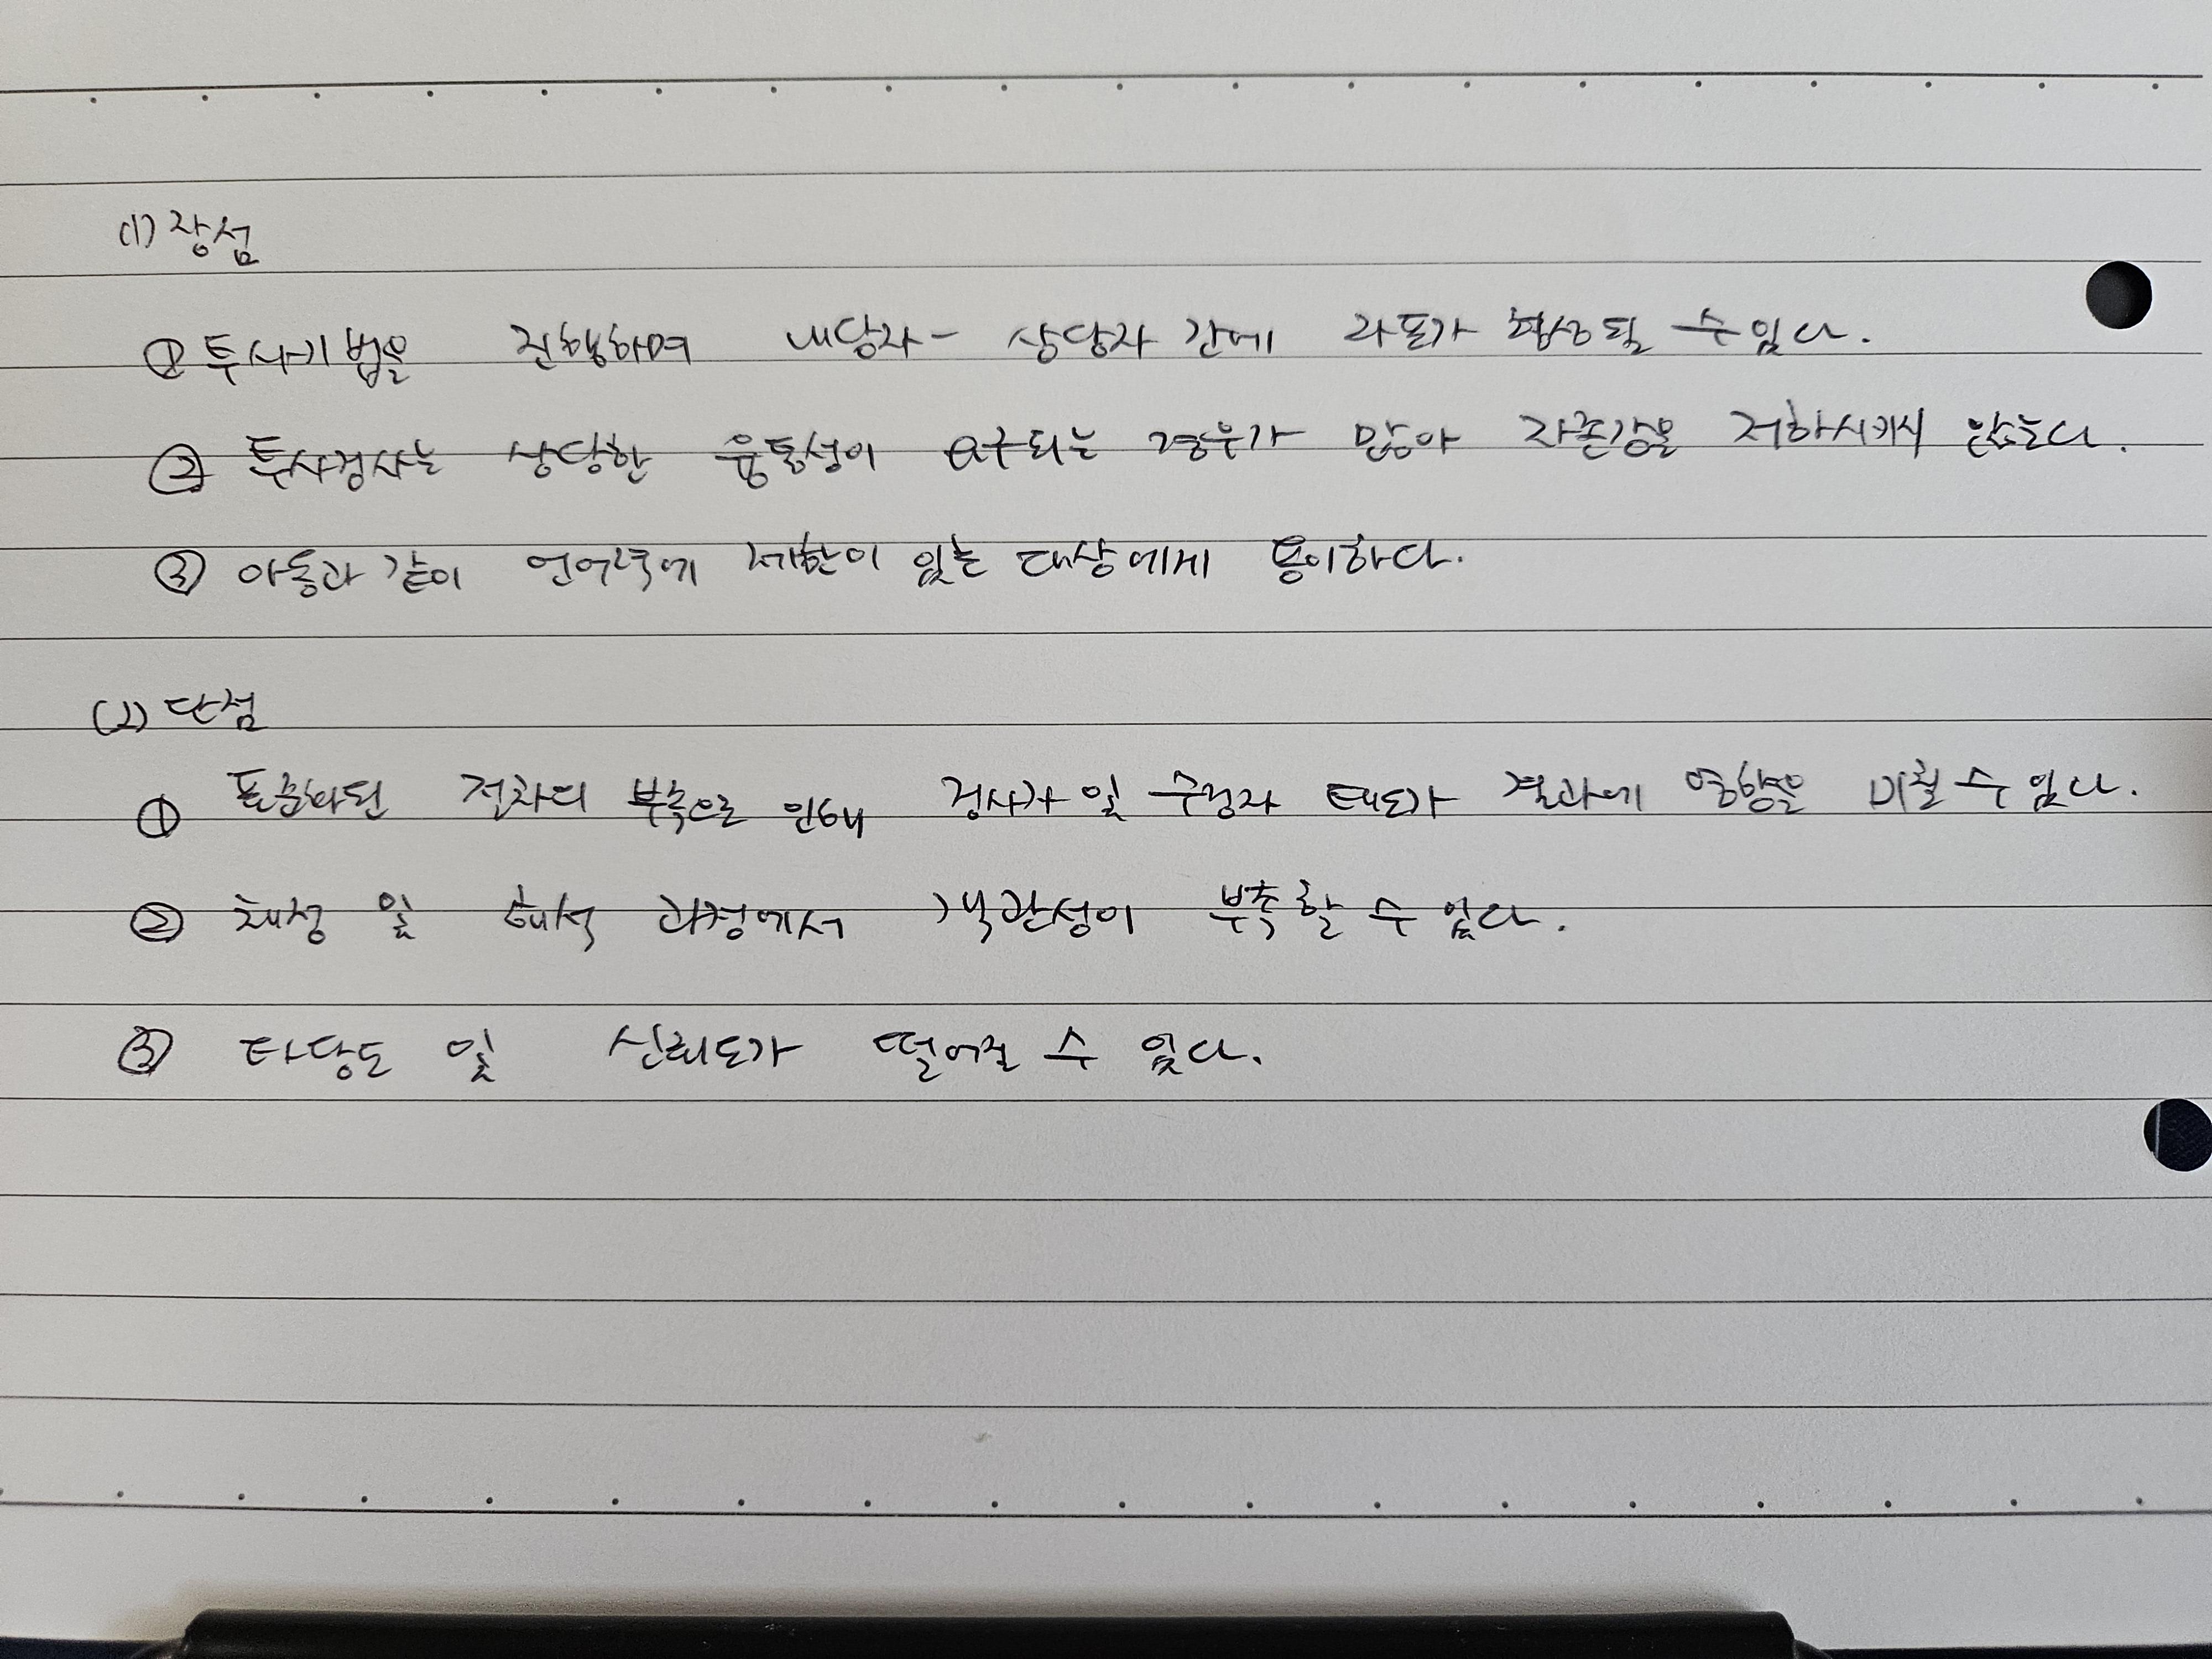 (1) 장점
① 투사기법을 진행하며 내담자 - 상담자 간에 라포가 형성될 수 있다.
② 투사검사는 상당한 융통성이 요구되는 경우가 많아 자존감을 저하시키지 않는다.
③ 아동과 같이 언어력에 제한이 있는 대상에게 용이하다.
(2) 단점
① 표준화된 절차의 부족으로 인해 검사자 및 수검자 태도가 결과에 영향을 미칠 수 있다.
② 채점 및 해석 과정에서 객관성이 부족할 수 있다.
③ 타당도 및 신뢰도가 떨어질 수 있다.